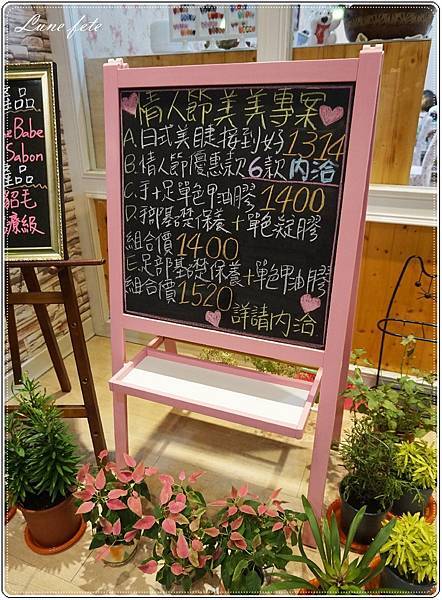 Lune fete
產品
Babe
Sabon
產品
貂毛
療級
情人節美美專案
A.日式美睫接到好1314
B.情人節優惠款6款內洽
C.手+足單色甲油膠1400
D.手部基礎保養+單色凝膠
組合價1400
E.足部基礎保養+單色甲油膠
組合價1520
詳請內洽